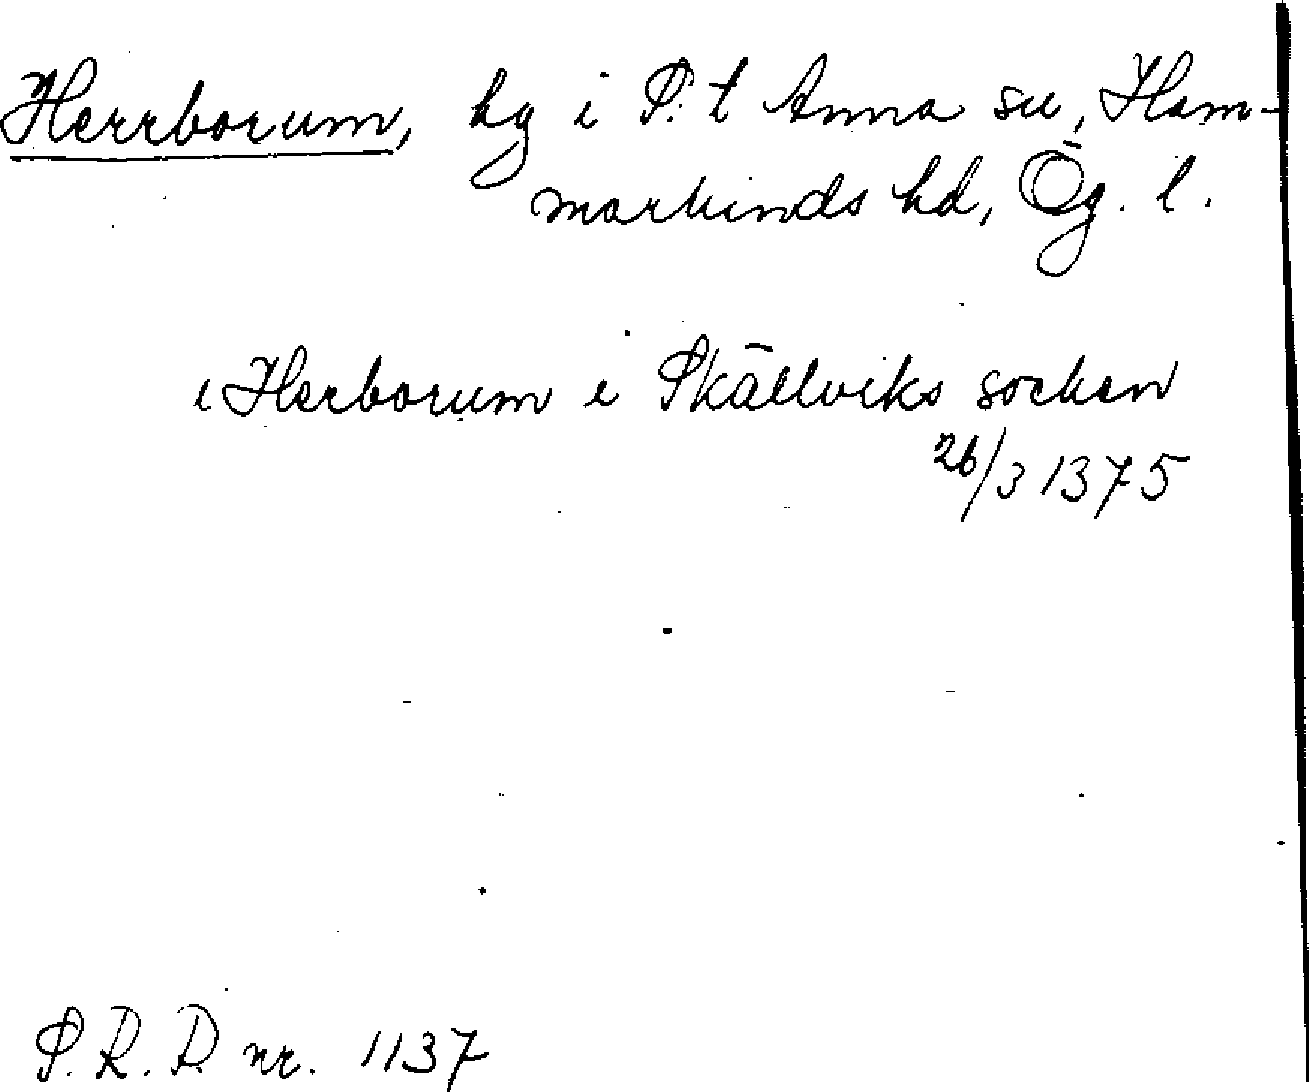 Herrborum, by i S:t Anna sn, Ham-
markinds hd, Ög. l.
i Herborum i Skällviks socken
26/3 1375
S.R.D nr. 1137